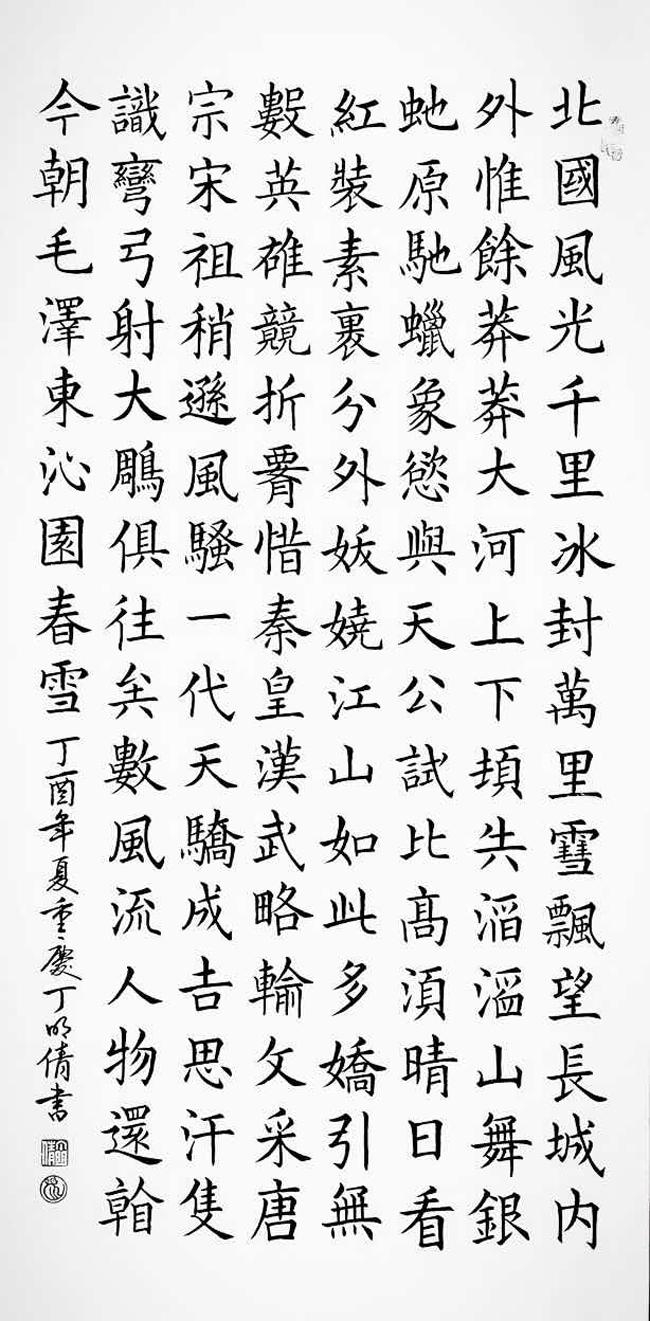 北國風光千里冰封萬里䨮飄望長城内
外惟餘莽莽大河上下頓失滔滔山舞銀
虵原馳蠟象慾與天公試比髙須晴日看
紅裝素裹分外妖嬈江山如此多嬌引無
數英雄競折腰惜秦皇漢武略輸文采唐
宗宋祖稍遜風騷一代天驕成吉思汗隻
識彎弓射大鵰俱往矣數風流人物還看
今朝毛澤東沁園春雪丁酉年夏重慶丁明倩書